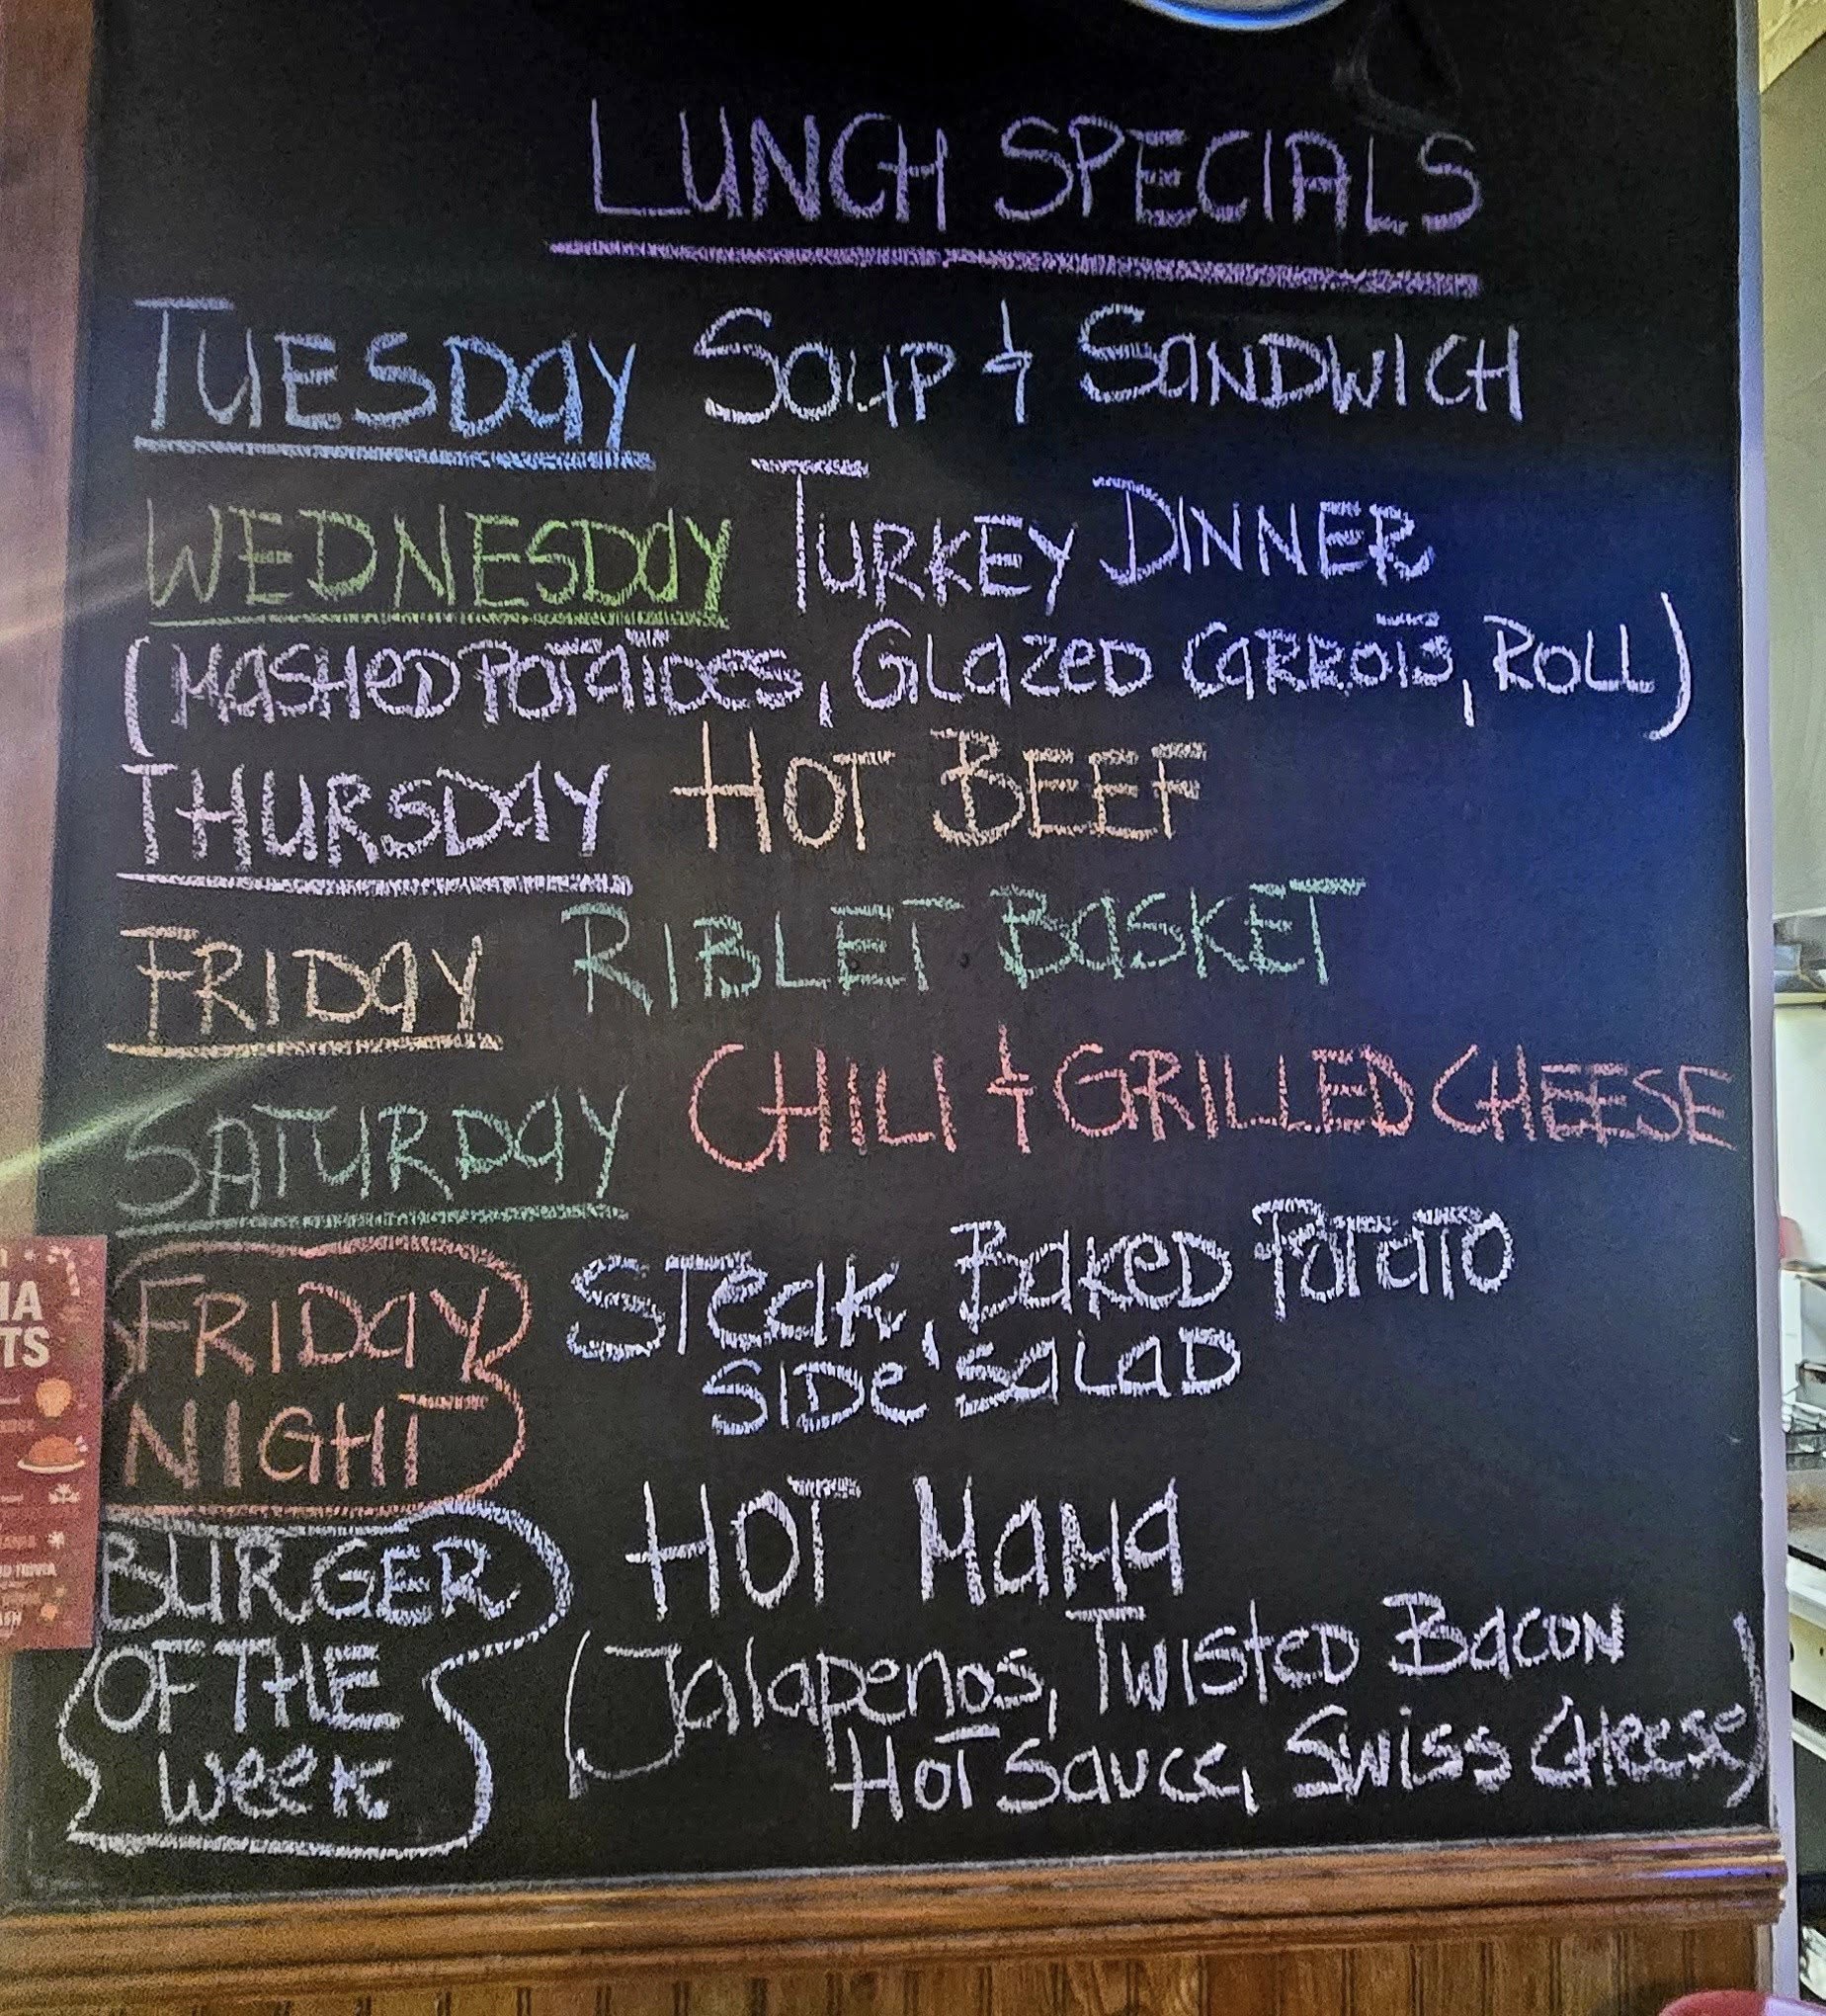 LUNCH SPECIALS
TUESDAY SOUP & SANDWICH
WEDNESDAY TURKEY DINNER
(MASHED POTATOES, GLAZED CARROTS, ROLL)
THURSDAY HOT BEEF
FRIDAY RIBLET BASKET
SATURDAY CHILI & GRILLED CHEESE
FRIDAY NIGHT
STEAK, BAKED POTATO
SIDE SALAD
BURGER
OF THE
WEEK
HOT MAMA
(Jalapenos, Twisted Bacon
Hot Sauce, Swiss Cheese)